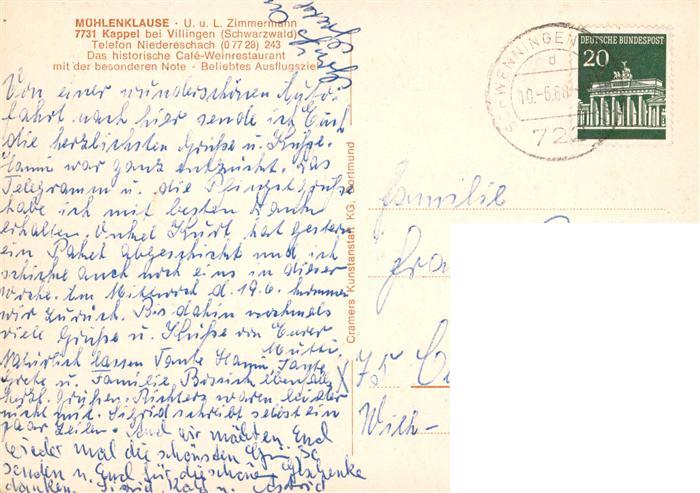 MÜHLENKLAUSE · U. u. L. Zimmermann
7731 Kappel bei Villingen (Schwarzwald)
Telefon Niedereschach (0 77 28) 243
Das historische Café-Weinrestaurant
mit der besonderen Note · Beliebtes Ausflugsziel
Von einer wunderschönen Auto-
fahrt nach hier sende ich Euch
die herzlichsten Grüße u. Küsse.
Hanni war ganz entzückt. Das
Telegramm u. die Pfingstgrüße
habe ich mit besten Dank
erhalten. Onkel Kurt hat gestern
ein Paket abgeschickt und ich
schicke auch noch eins in dieser
Woche. Am Mittwoch d. 19.6. kommen
wir zurück. Bis dahin nochmals
viele Grüße u. Küsse von Eurer
Mutti.
Natürlich lassen Tante Hanni, Tante
Grete u. Familie ebenfalls
herzl. grüßen. Richters waren leider
nicht mit. Sigrid schreibt selbst ein
paar Zeilen. Und wir möchten Euch
wieder mal die schönsten Grüße
senden u. Euch für die schönen Geschenke
danken. Sigrid, u. Astrid
Cramers Kunstanstalt KG, Dortmund
SCHWENNINGEN
d
10.-6.68
722
DEUTSCHE BUNDESPOST
20
Familie
Fra
X 75 C
Wilh-